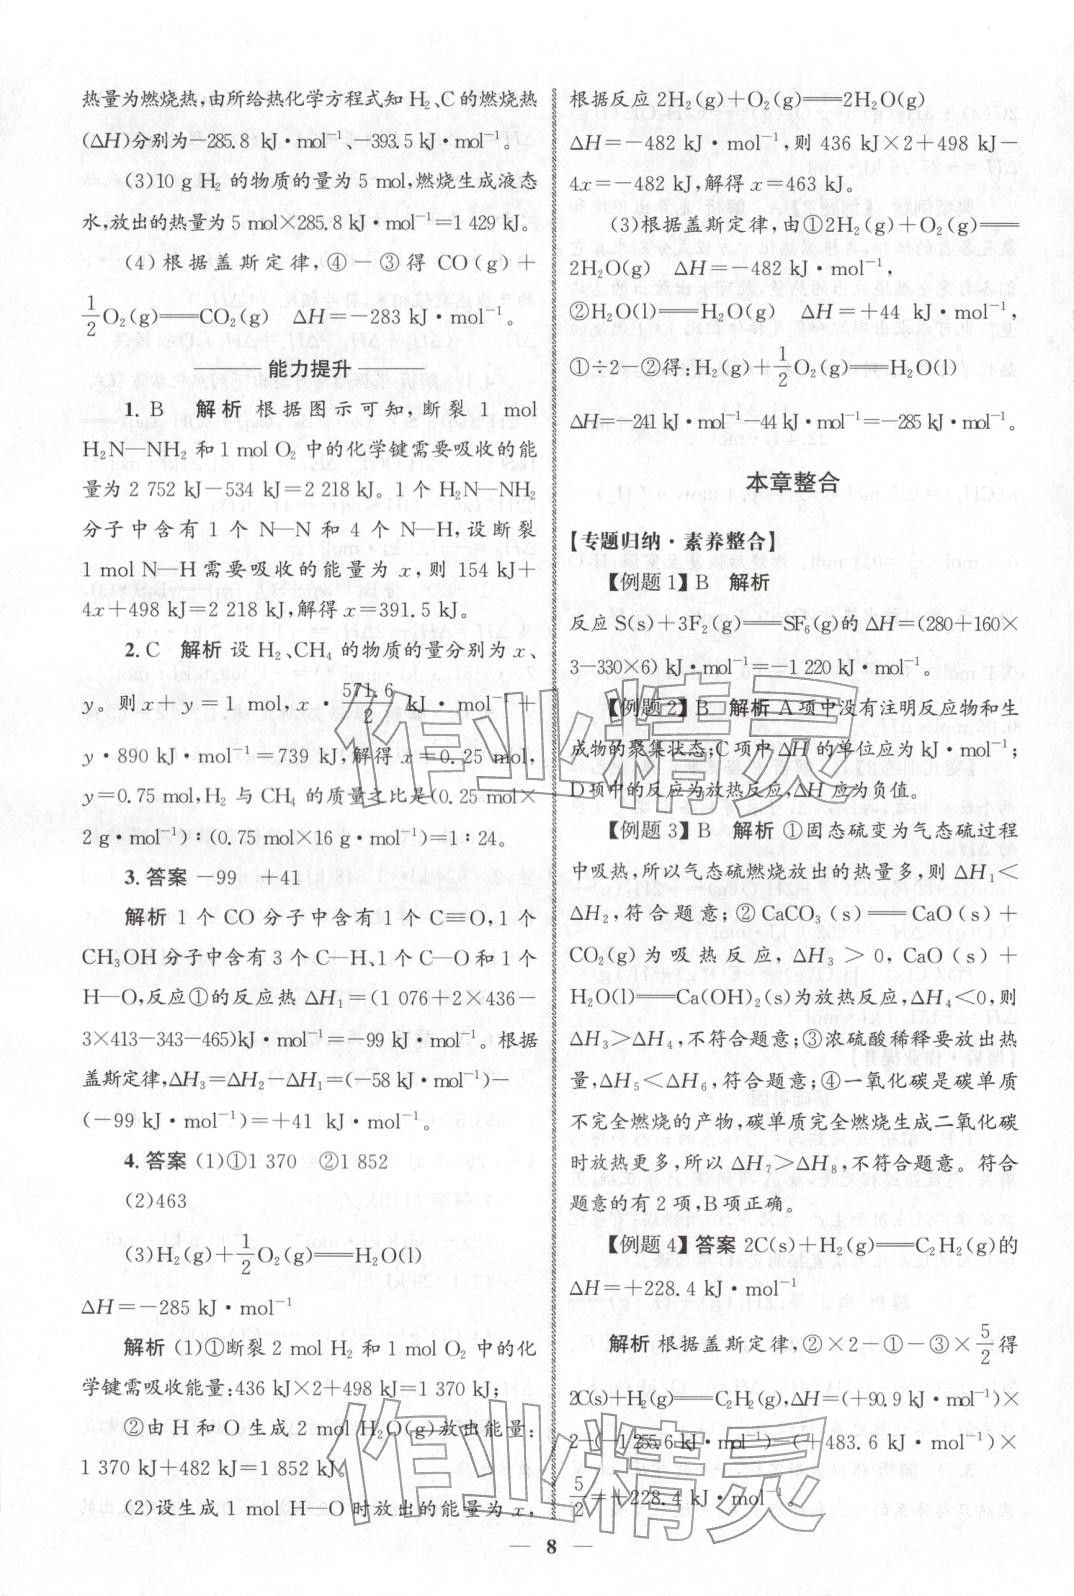 热量为燃烧热,由所给热化学方程式知 H₂、C 的燃烧热
(ΔH)分别为-285.8 kJ·mol⁻¹、-393.5 kJ·mol⁻¹。
(3)10 g H₂ 的物质的量为 5 mol,燃烧生成液态
水,放出的热量为 5 mol×285.8 kJ·mol⁻¹=1 429 kJ。
(4)根据盖斯定律,④-③得 CO(g)+
1/2 O₂(g)══CO₂(g) ΔH=-283 kJ·mol⁻¹。
能力提升
1. B 解析 根据图示可知,断裂 1 mol
H₂N—NH₂ 和 1 mol O₂ 中的化学键需要吸收的能
量为 2 752 kJ-534 kJ=2 218 kJ。1 个 H₂N—NH₂
分子中含有 1 个 N—N 和 4 个 N—H,设断裂
1 mol N—H 需要吸收的能量为 x,则 154 kJ+
4x+498 kJ=2 218 kJ,解得 x=391.5 kJ。
2. C 解析 设 H₂、CH₄ 的物质的量分别为 x、
y。则 x+y=1 mol, x·571.6/2 kJ·mol⁻¹+
y·890 kJ·mol⁻¹=739 kJ,解得 x=0.25 mol,
y=0.75 mol,H₂ 与 CH₄ 的质量之比是(0.25 mol×
2 g·mol⁻¹)∶(0.75 mol×16 g·mol⁻¹)=1∶24。
3. 答案 -99 +41
解析 1 个 CO 分子中含有 1 个 C≡O,1 个
CH₃OH 分子中含有 3 个 C—H、1 个 C—O 和 1 个
H—O,反应①的反应热 ΔH₁=(1 076+2×436-
3×413-343-465)kJ·mol⁻¹=-99 kJ·mol⁻¹。根据
盖斯定律,ΔH₃=ΔH₂-ΔH₁=(-58 kJ·mol⁻¹)-
(-99 kJ·mol⁻¹)=+41 kJ·mol⁻¹。
4. 答案 (1)①1 370 ②1 852
(2)463
(3)H₂(g)+1/2 O₂(g)══H₂O(l)
ΔH=-285 kJ·mol⁻¹
解析 (1)①断裂 2 mol H₂ 和 1 mol O₂ 中的化
学键需吸收能量:436 kJ×2+498 kJ=1 370 kJ;
②由 H 和 O 生成 2 mol H₂O(g)放出能量:
1 370 kJ+482 kJ=1 852 kJ。
(2)设生成 1 mol H—O 时放出的能量为 x,
根据反应 2H₂(g)+O₂(g)══2H₂O(g)
ΔH=-482 kJ·mol⁻¹,则 436 kJ×2+498 kJ-
4x=-482 kJ,解得 x=463 kJ。
(3)根据盖斯定律,由①2H₂(g)+O₂(g)══
2H₂O(g) ΔH=-482 kJ·mol⁻¹,
②H₂O(l)══H₂O(g) ΔH=+44 kJ·mol⁻¹,
①÷2-②得:H₂(g)+1/2 O₂(g)══H₂O(l)
ΔH=-241 kJ·mol⁻¹-44 kJ·mol⁻¹=-285 kJ·mol⁻¹。
本章整合
【专题归纳·素养整合】
【例题 1】B 解析
反应 S(s)+3F₂(g)══SF₆(g)的 ΔH=(280+160×
3-330×6) kJ·mol⁻¹=-1 220 kJ·mol⁻¹。
【例题 2】B 解析 A 项中没有注明反应物和生
成物的聚集状态;C 项中 ΔH 的单位应为 kJ·mol⁻¹;
D 项中的反应为放热反应,ΔH 应为负值。
【例题 3】B 解析 ①固态硫变为气态硫过程
中吸热,所以气态硫燃烧放出的热量多,则 ΔH₁<
ΔH₂,符合题意;②CaCO₃(s)══CaO(s)+
CO₂(g)为吸热反应,ΔH₃>0,CaO(s)+
H₂O(l)══Ca(OH)₂(s)为放热反应,ΔH₄<0,则
ΔH₃>ΔH₄,不符合题意;③浓硫酸稀释要放出热
量,ΔH₅<ΔH₆,符合题意;④一氧化碳是碳单质
不完全燃烧的产物,碳单质完全燃烧生成二氧化碳
时放热更多,所以 ΔH₇>ΔH₈,不符合题意。符合
题意的有 2 项,B 项正确。
【例题 4】答案 2C(s)+H₂(g)══C₂H₂(g)的
ΔH=+228.4 kJ·mol⁻¹
解析 根据盖斯定律,②×2-①-③×5/2 得
2C(s)+H₂(g)══C₂H₂(g),ΔH=(+90.9 kJ·mol⁻¹)×
2-(-1 255.6 kJ·mol⁻¹)-(+483.6 kJ·mol⁻¹)×
5/2=+228.4 kJ·mol⁻¹。
— 8 —
作业精灵
作业精灵